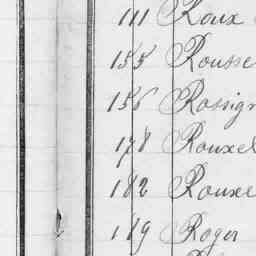 111 Roux
155 Rousse
156 Rossign
178 Rouxel
182 Rouxe
189 Roger